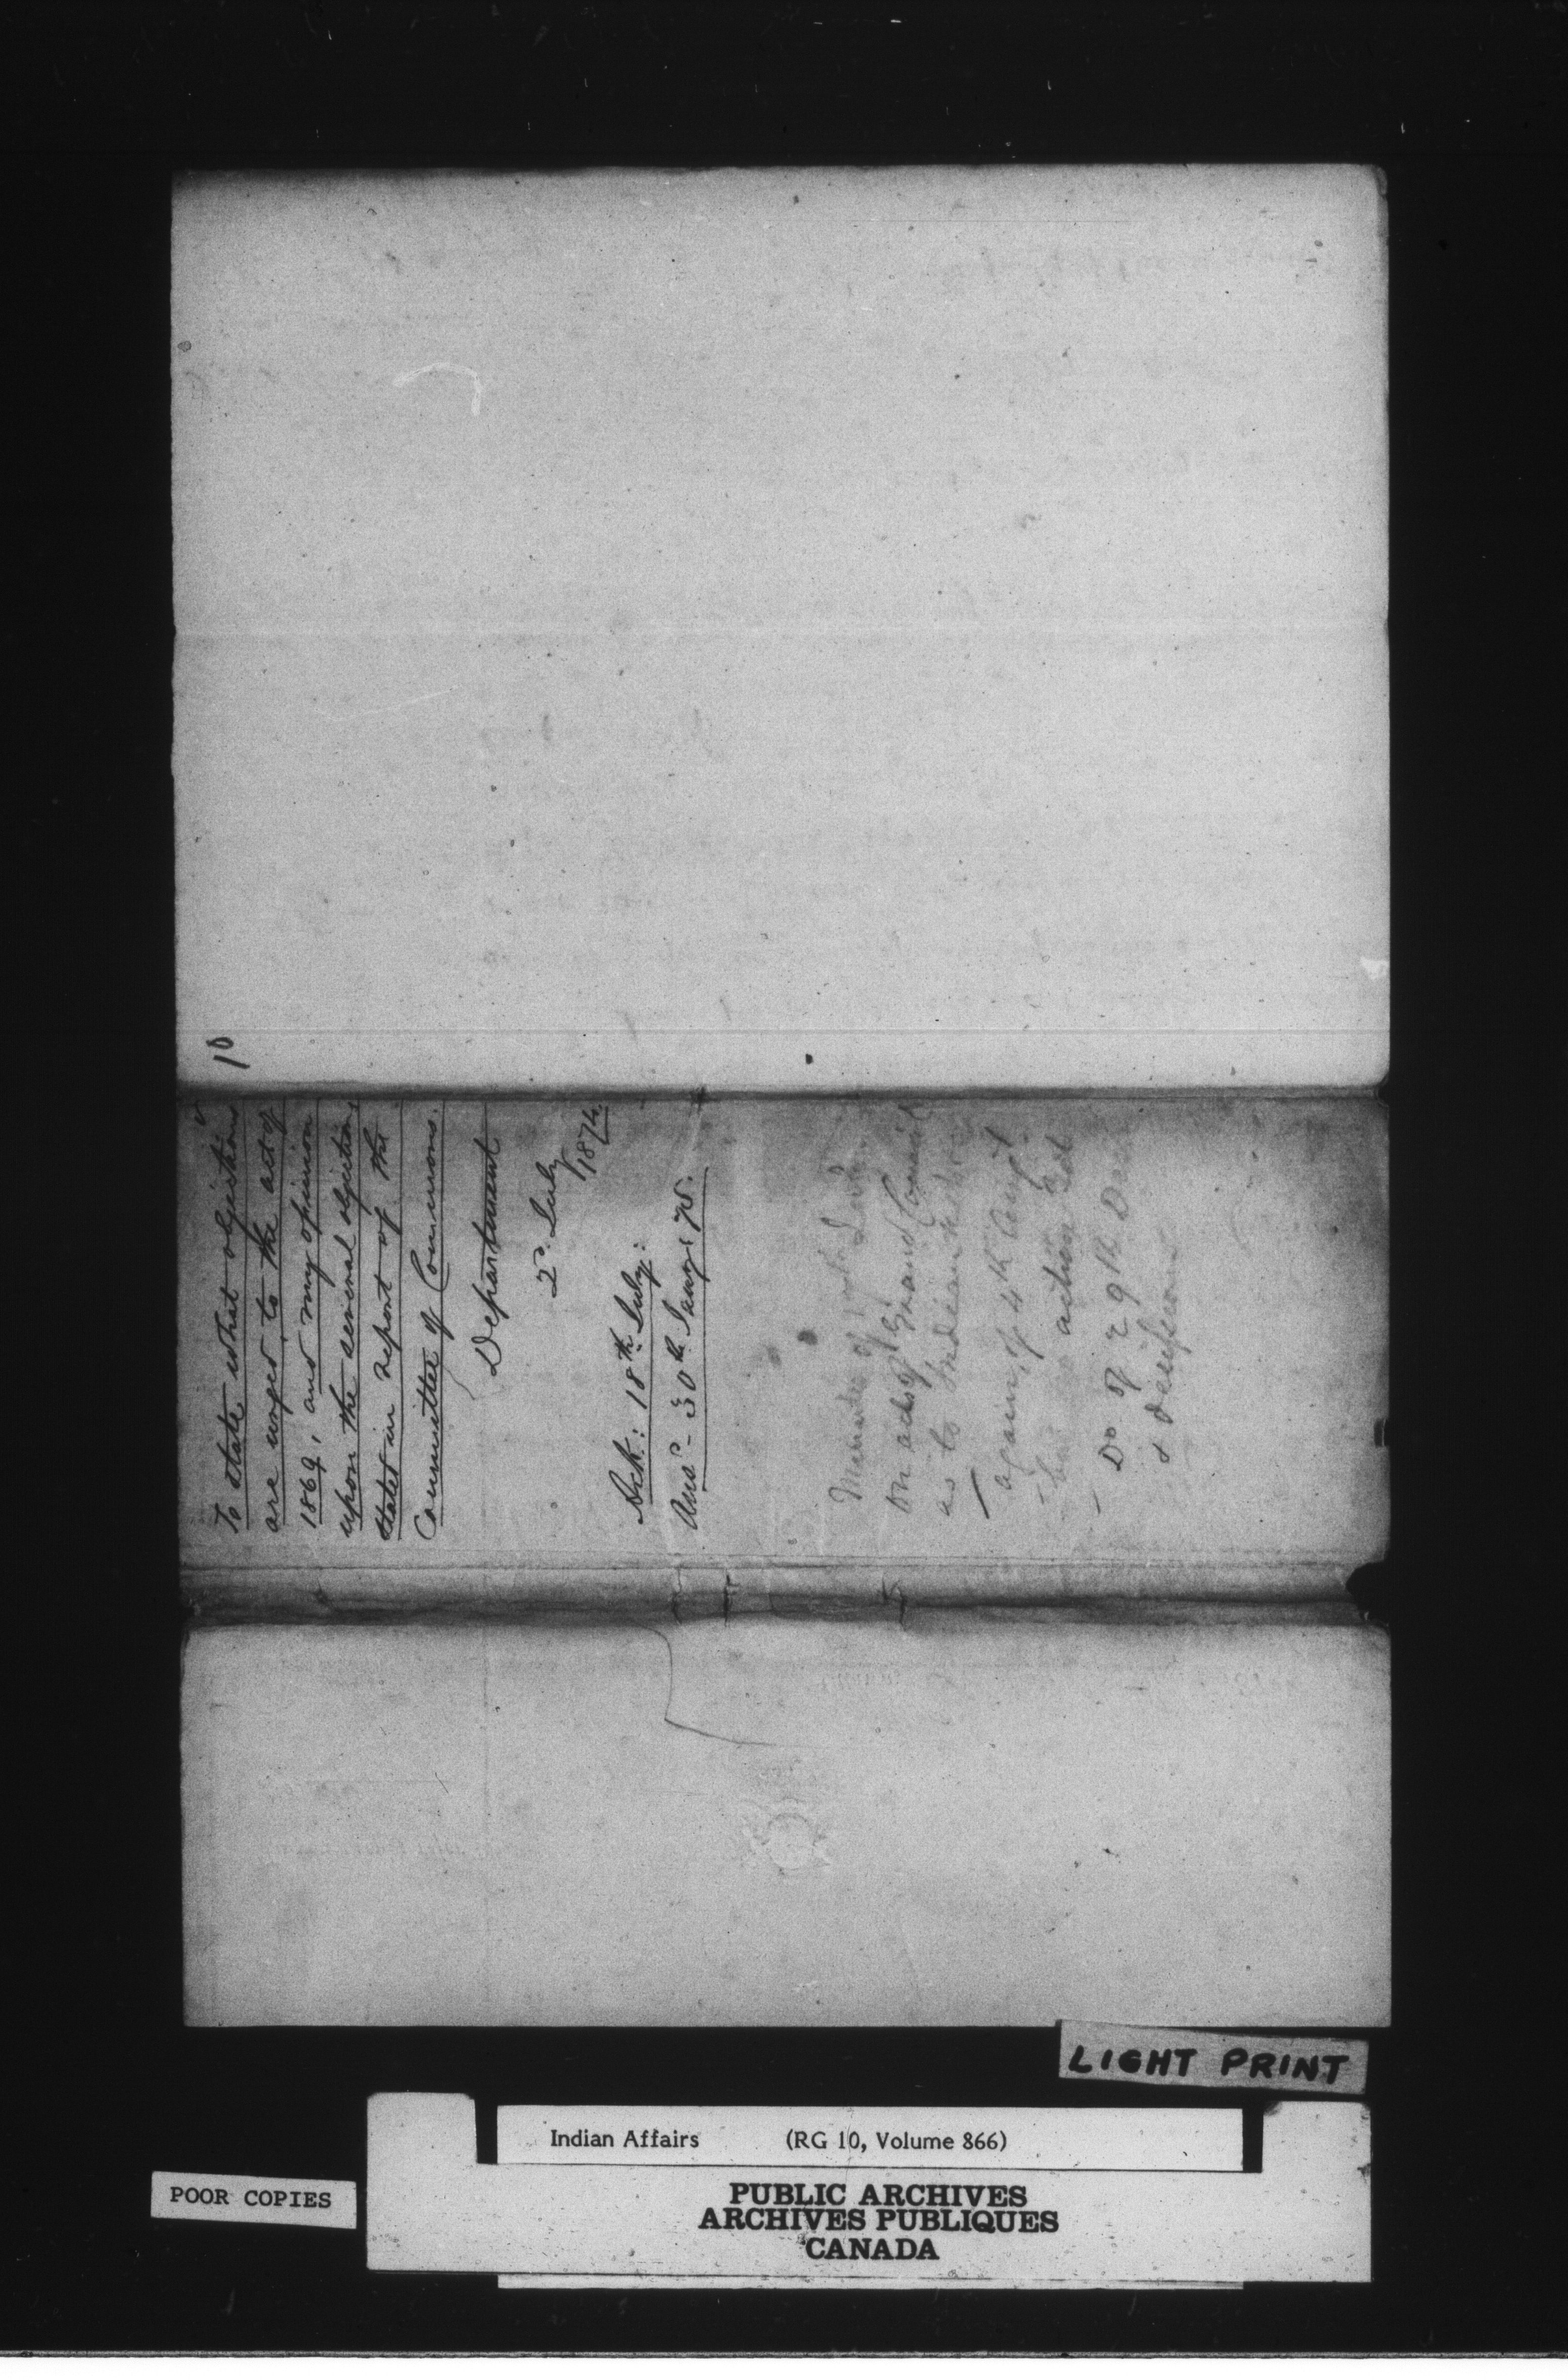 10
To state what objections
are urged, to the act of
1869, and my opinion
upon the several objections
stated in report of the
Committee of Commons.
Department
2d. July
1874.
Ack: 18th July:
Ansd - 30th Jany: 75.
Minutes of
on acts of Grand Council
as to Indian
again, of 4th Augt
action
Do of 29th Dec
&
LIGHT PRINT
Indian Affairs (RG 10, Volume 866)
POOR COPIES
PUBLIC ARCHIVES
ARCHIVES PUBLIQUES
CANADA